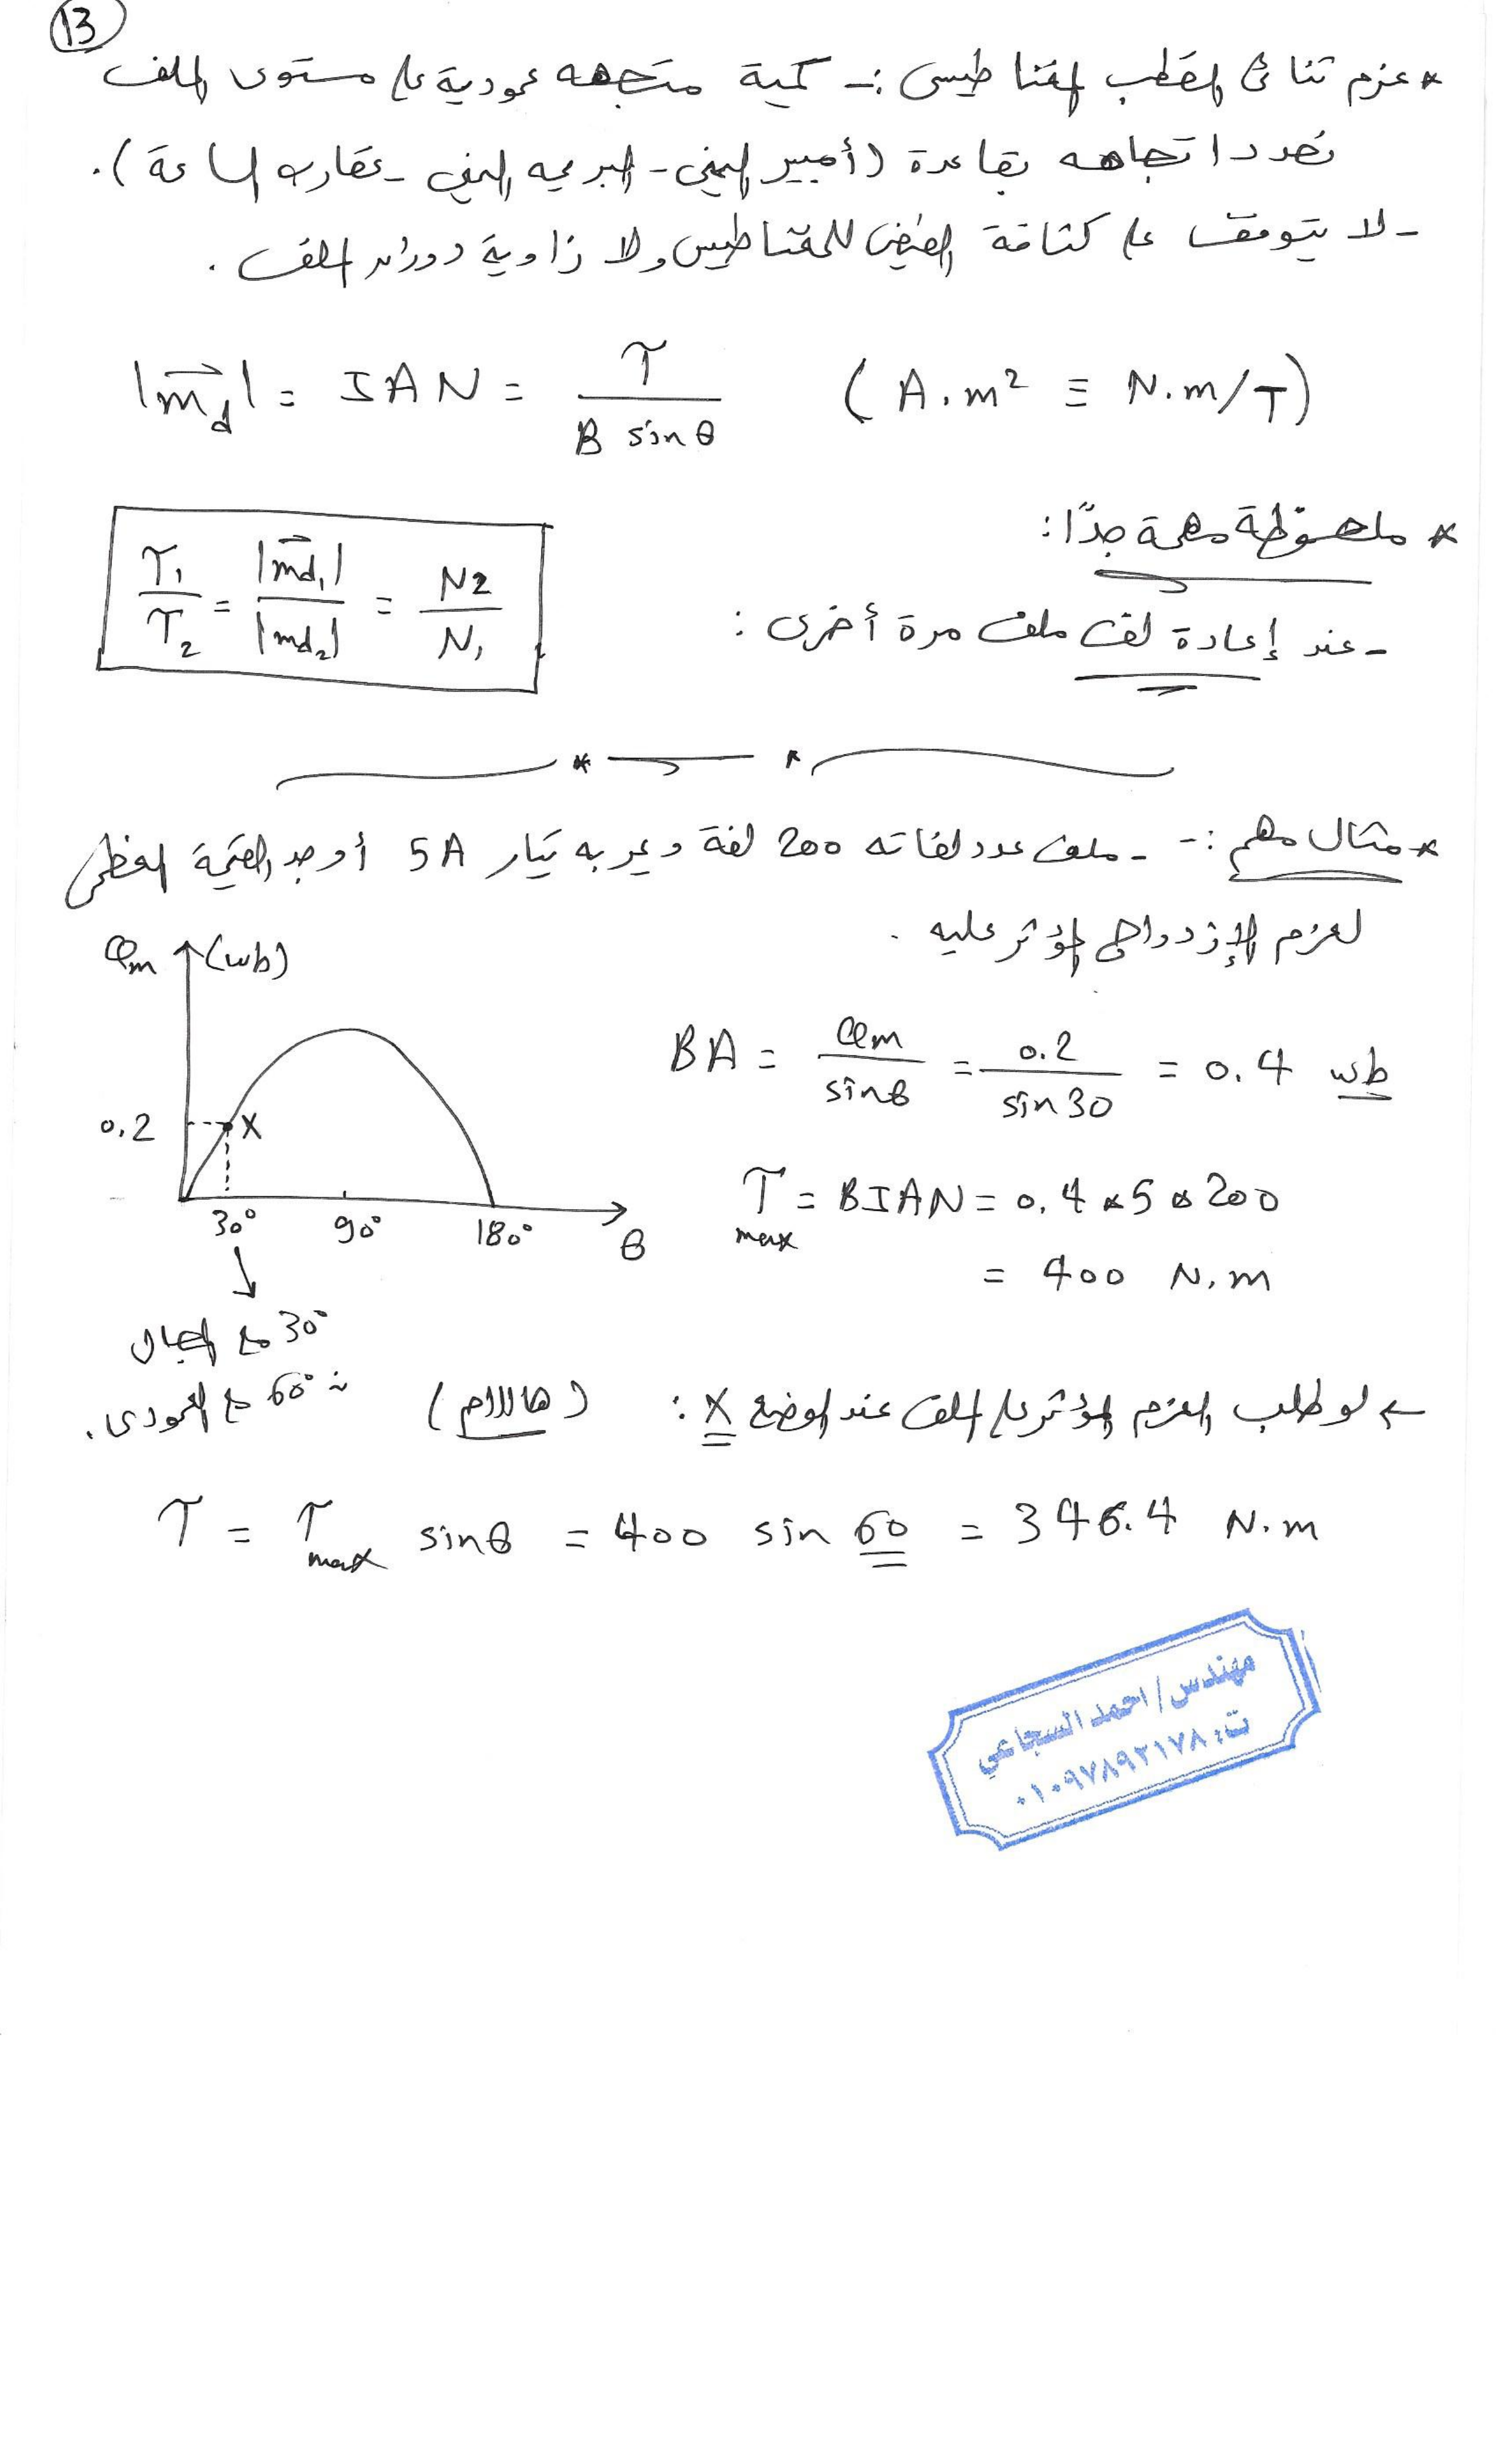 13
* عزم ثنائى القطب المغناطيسى :- كمية متجهه عمودية على مستوى الملف
تحدد اتجاهه بقاعدة (أمبير اليمنى - البريمه اليمنى - عقارب الساعة).
- لا يتوقف على كثافة الفيض المغناطيس ولا زاوية دوران الملف .
|m⃗d| = IAN = τ / (B sinθ) (A.m² ≡ N.m/T)
* ملحوظة مهمة جدًا :
- عند إعادة لف ملف مرة أخرى :
τ₁/τ₂ = |m⃗d₁|/|md₂| = N2/N₁
* مثال مهم :- - ملف عدد لفاته 200 لفة ويمر به تيار 5A أوجد القيمة العظمى
لعزم الإزدواج المؤثر عليه .
φm (wb)
0.2 X
30° 90° 180° θ
30° مع المجال
∴ 60° مع العمودى.
BA = φm / sinθ = 0.2 / sin 30 = 0.4 wb
τmax = BIAN = 0.4 × 5 × 200
= 400 N.m
← لو طلب العزم المؤثر على الملف عند الوضع X : (هااااام)
τ = τmax sinθ = 400 sin 60 = 346.4 N.m
مهندس/ احمد السجاعي
ت: ٠١٠٩٧٨٩٢١٧٨